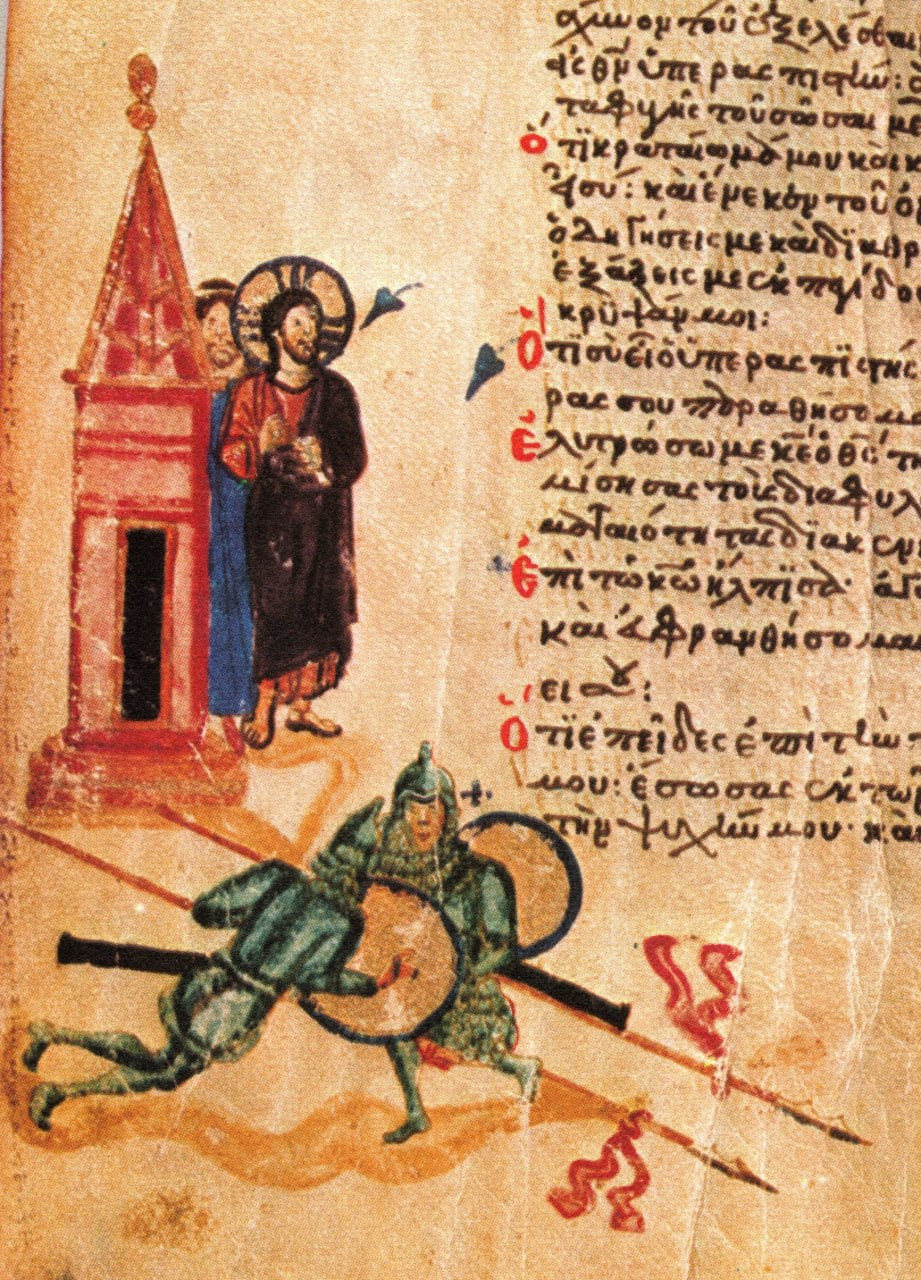 άχυνον τοῦ ἐξελέσθαι
εἰς θν ὑπερασπιστὴν:
ταφυγῆς τοῦ σῶσαι με
ὅτϊ κραταίωμά μου καὶ κ
σύ: καὶ
ὁδηγήσεις με καὶ δϊαθρ
ἐξάξεις με ἐκ παγίδο
κρϋψάν μοι:
Ὅτϊ σὺ εἶ ὁ ὑπερασπϊστής
ρας σου παραθήσομ
Ἐλυτρώσω με κε ὁ θς τη
μίσησας τοὺς διαφυλ
ματαιότητας δϊακενῆ
Ἐπὶ τῷ κω ἤλπϊσα· ἀγ
καὶ εὐφρανθήσομαι
ει σου:
Ὅτϊ ἐπεῖδες ἐπὶ τὴν
μου: ἔσωσας ἐκ τῶν
τὴν ψυχήν μου· κα